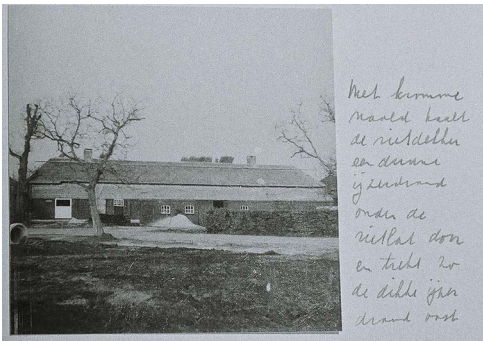 Met kromme
naald haalt
de rietdekker
een dunne
ijzerdraad
onder de
rietlat door
en trekt zo
de dikke ijzer
draad vast